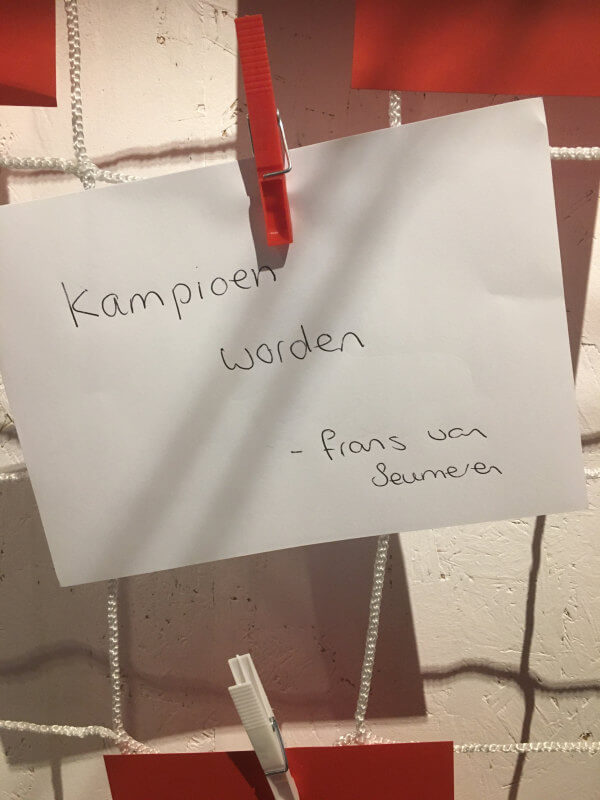 Kampioen
worden
- frans van
Seumeren